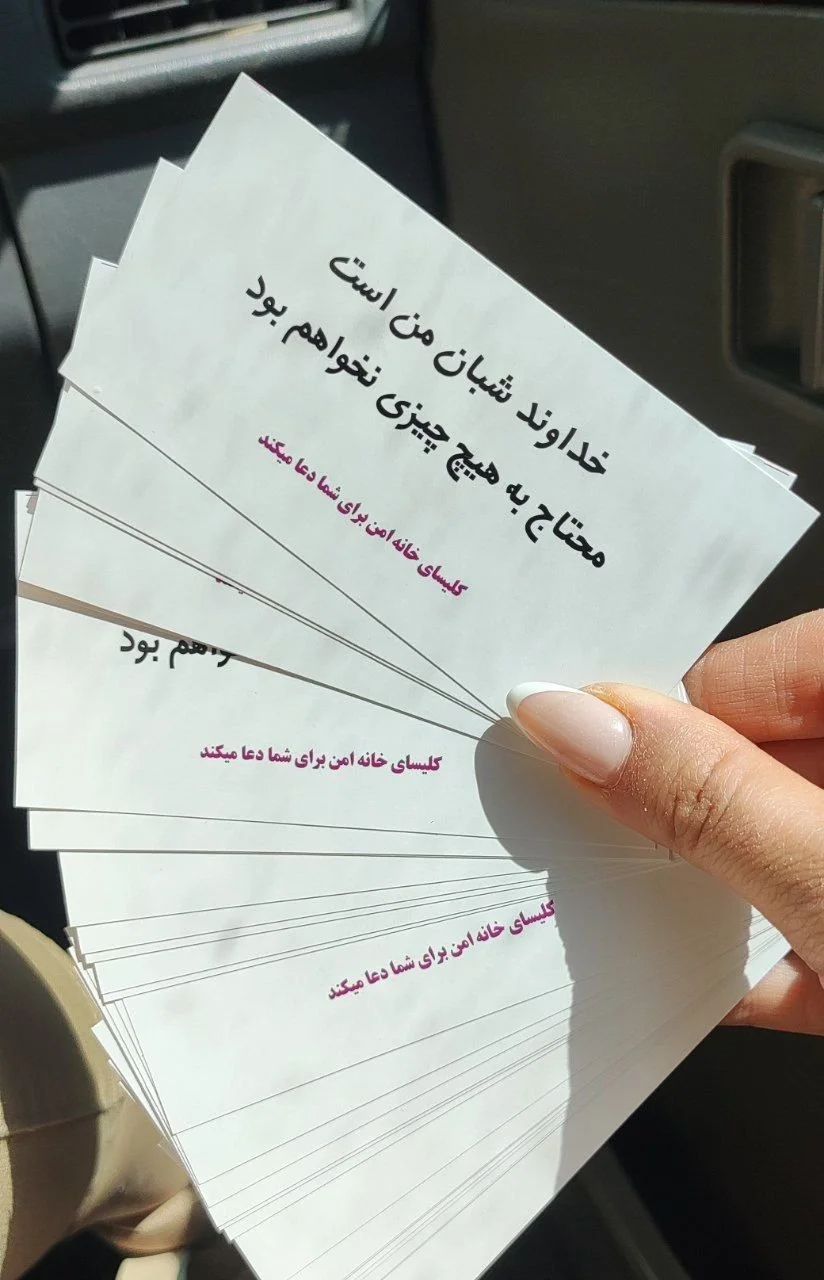 خداوند شبان من است
محتاج به هیچ چیزی نخواهم بود
کلیسای خانه امن برای شما دعا میکند
بود
کلیسای خانه امن برای شما دعا میکند
کلیسای خانه امن برای شما دعا میکند